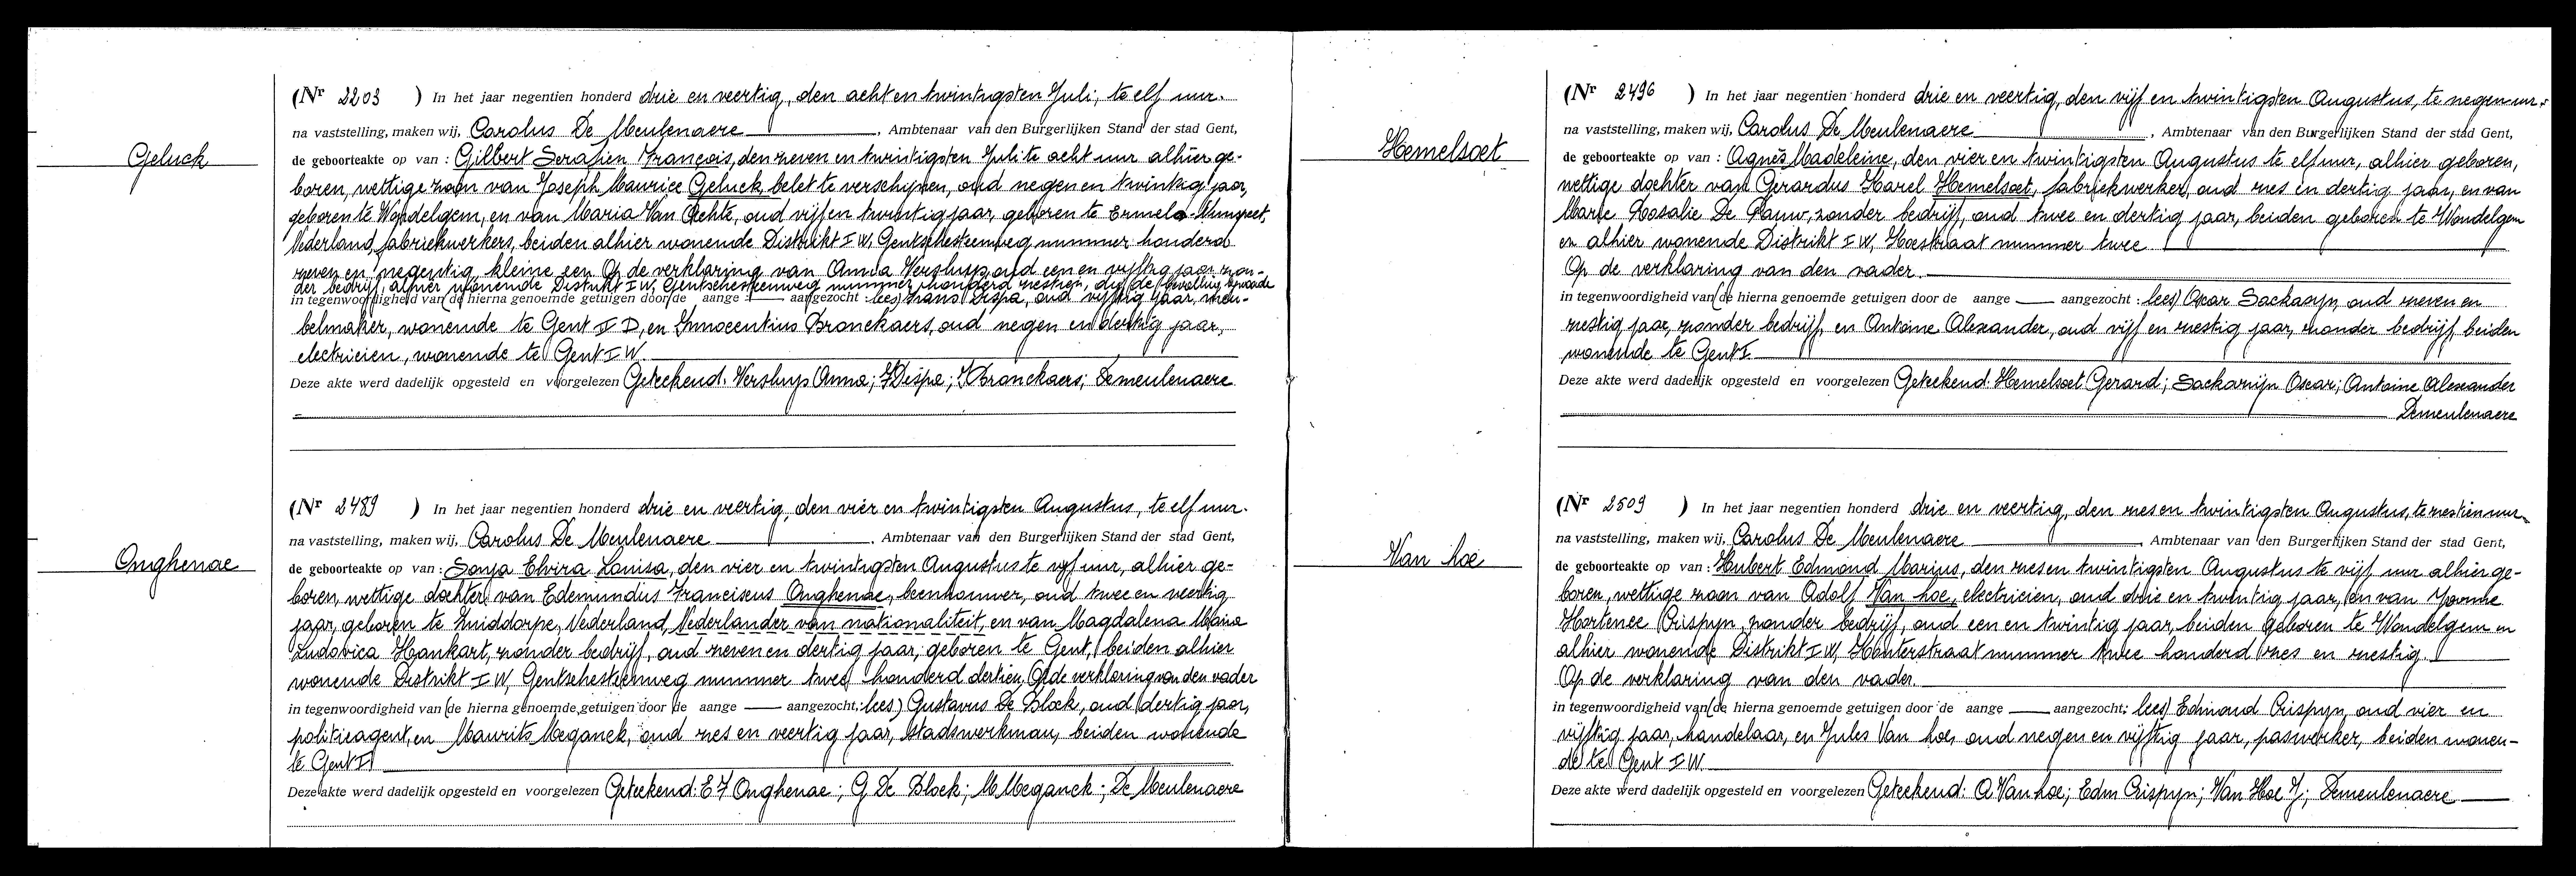 Geluck
(Nr 2203 ) In het jaar negentien honderd drie en veertig, den acht en twintigsten Juli, te elf uur.
na vaststelling, maken wij, Carolus De Meulenaere, Ambtenaar van den Burgerlijken Stand der stad Gent,
de geboorteakte op van : Gilbert Serafien François, den zeven en twintigsten Juli te acht uur alhier ge-
boren, wettige zoon van Joseph Maurice Geluck, belet te verschijnen, oud negen en twintig jaar,
geboren te Wondelgem, en van Maria Van Aehte, oud vijf en twintig jaar, geboren te Ermelo-Nunspeet,
Nederland, fabriekwerkers, beiden alhier wonende Distrikt I W, Gentschesteenweg nummer honderd
zeven en negentig, kleine een Op de verklaring van Anna Versluys, oud een en vijftig jaar, zon-
der bedrijf, alhier wonende Distrikt I W, Gentschesteenweg nummer honderd zestien, die de bevalling bijwoonde
in tegenwoordigheid van (de hierna genoemde getuigen door de aange — aangezocht : lees) Frans Dispa, oud vijftig jaar, meu-
belmaker, wonende te Gent I D, en Innocentius Bronckaers, oud negen en dertig jaar,
electricien, wonende te Gent I W.
Deze akte werd dadelijk opgesteld en voorgelezen Geteekend: Versluys Anna; F Dispa; I Bronckaers; Demeulenaere
Onghenae
(Nr 2489 ) In het jaar negentien honderd drie en veertig, den vier en twintigsten Augustus, te elf uur.
na vaststelling, maken wij, Carolus De Meulenaere, Ambtenaar van den Burgerlijken Stand der stad Gent,
de geboorteakte op van : Sonja Elvira Louisa, den vier en twintigsten Augustus te vijf uur, alhier ge-
boren, wettige dochter van Edemundus Franciscus Onghenae, beenhouwer, oud twee en veertig
jaar, geboren te Zuiddorpe, Nederland, Nederlander van nationaliteit, en van Magdalena Maria
Ludovica Hankart, zonder bedrijf, oud zeven en dertig jaar, geboren te Gent, beiden alhier
wonende Distrikt I W, Gentschesteenweg nummer twee honderd dertien, Op de verklaring van den vader
in tegenwoordigheid van (de hierna genoemde getuigen door de aange — aangezocht, lees) Gustavus De Block, oud dertig jaar,
politieagent, en Maurits Meganck, oud zes en veertig jaar, stadswerkman, beiden wonende
te Gent I
Deze akte werd dadelijk opgesteld en voorgelezen Geteekend: E F Onghenae; G De Block; M Meganck; De Meulenaere
Hemelsoet
(Nr 2496 ) In het jaar negentien honderd drie en veertig, den vijf en twintigsten Augustus, te negen uur.
na vaststelling, maken wij, Carolus De Meulenaere, Ambtenaar van den Burgerlijken Stand der stad Gent,
de geboorteakte op van : Agnès Madeleine, den vier en twintigsten Augustus te elf uur, alhier geboren,
wettige dochter van Gerardus Karel Hemelsoet, fabriekwerker, oud zes en dertig jaar, en van
Marie Rosalie De Pauw, zonder bedrijf, oud twee en dertig jaar, beiden geboren te Wondelgem
en alhier wonende Distrikt I W, Hoestraat nummer twee
Op de verklaring van den vader.
in tegenwoordigheid van (de hierna genoemde getuigen door de aange — aangezocht : lees) Oscar Sackasyn, oud zeven en
zestig jaar, zonder bedrijf, en Antoine Alexander, oud vijf en zestig jaar, zonder bedrijf, beiden
wonende te Gent I
Deze akte werd dadelijk opgesteld en voorgelezen Geteekend: Hemelsoet Gerard; Sackasyn Oscar; Antoine Alexander
Demeulenaere
Van hoe
(Nr 2509 ) In het jaar negentien honderd drie en veertig, den zes en twintigsten Augustus, te zestien uur,
na vaststelling, maken wij, Carolus De Meulenaere, Ambtenaar van den Burgerlijken Stand der stad Gent,
de geboorteakte op van : Hubert Edmond Marius, den zes en twintigsten Augustus te vijf uur alhier ge-
boren, wettige zoon van Adolf Van hoe, electricien, oud drie en twintig jaar, en van Yvonne
Hortense Crispyn, zonder bedrijf, oud een en twintig jaar, beiden geboren te Wondelgem en
alhier wonende Distrikt I W, Houterstraat nummer twee honderd zes en zestig.
Op de verklaring van den vader.
in tegenwoordigheid van (de hierna genoemde getuigen door de aange — aangezocht; lees) Edmond Crispyn, oud vier en
vijftig jaar, handelaar, en Jules Van hoe, oud negen en vijftig jaar, paswerker, beiden wonen-
de te Gent I W.
Deze akte werd dadelijk opgesteld en voorgelezen Geteekend: A Van hoe; Edm Crispyn; Van Hoe J; Demeulenaere